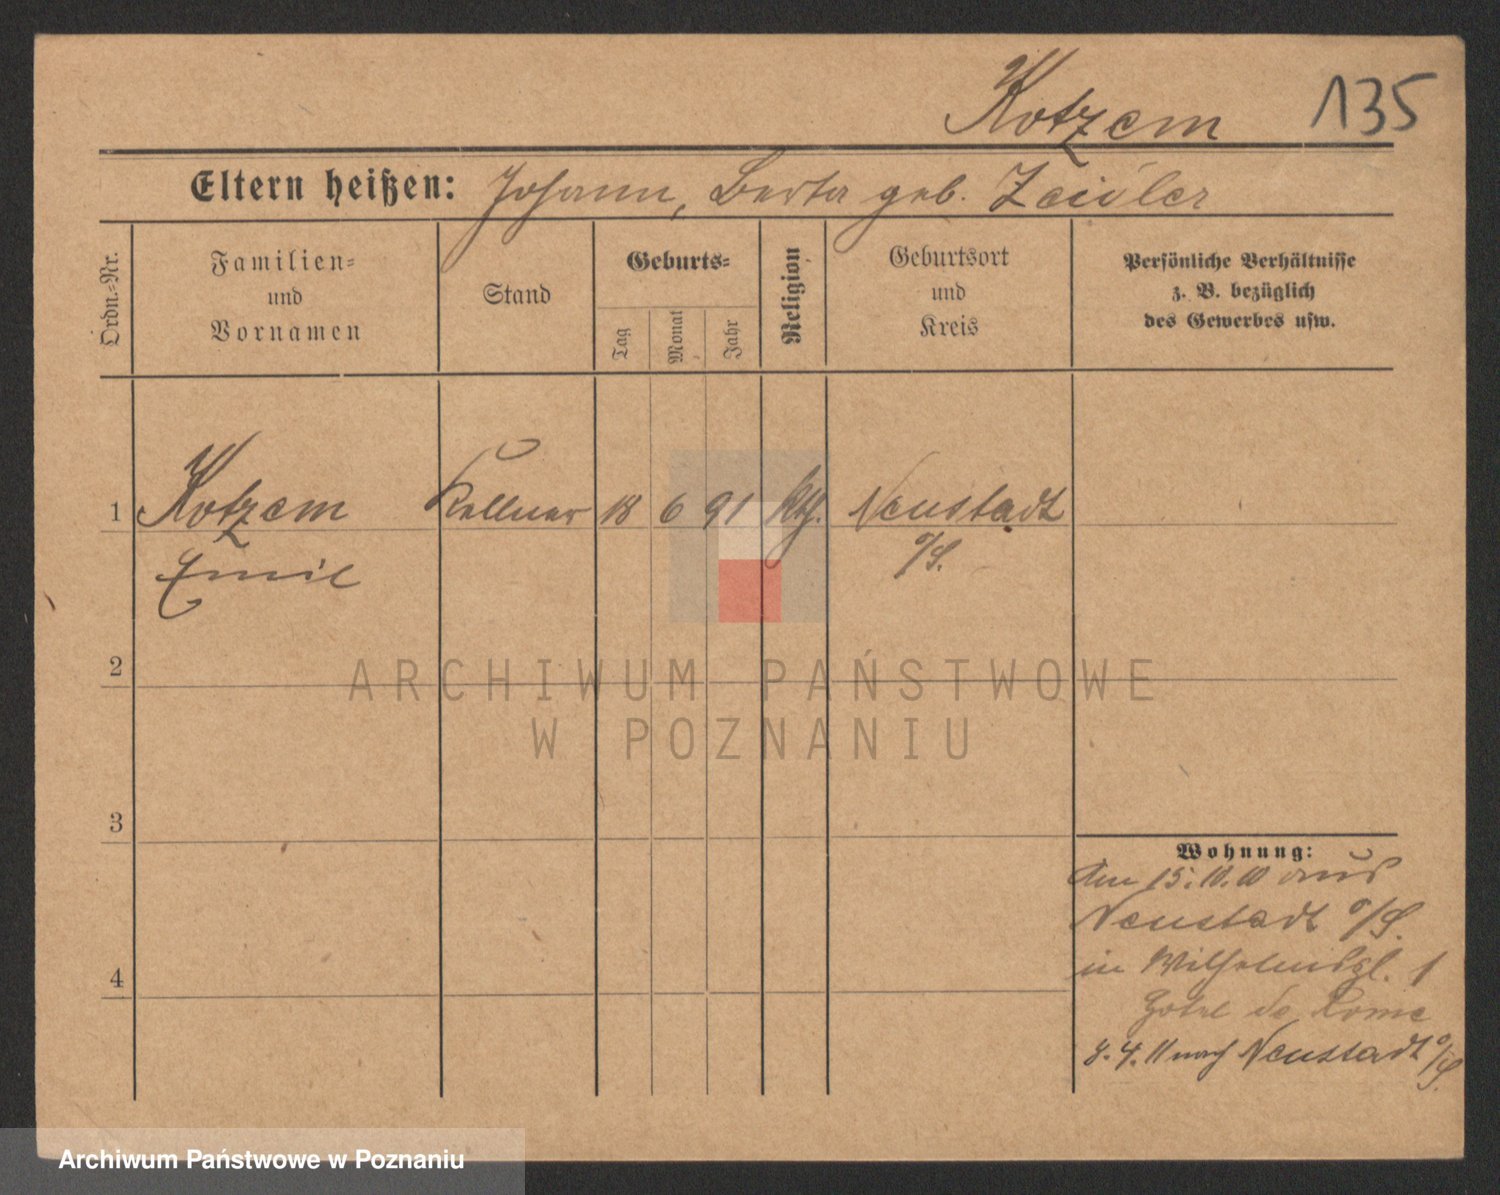 Kotzem 135
Eltern heißen: Johann, Berta geb. Zeidler
Ordn.-Nr.
Familien-
und
Vornamen
Stand
Geburts-
Tag
Monat
Jahr
Religion
Geburtsort
und
Kreis
Persönliche Verhältnisse
z. B. bezüglich
des Gewerbes usw.
1 Kotzem Kellner 18 6 91 kth. Neustadt
Emil o/S.
2
ARCHIWUM PAŃSTWOWE
W POZNANIU
3
Wohnung:
Am 15. 10. 10 aus
Neustadt o/S.
in Wilhelmspl. 1
Hotel de Rome
8. 4. 11 nach Neustadt o/S.
4
Archiwum Państwowe w Poznaniu